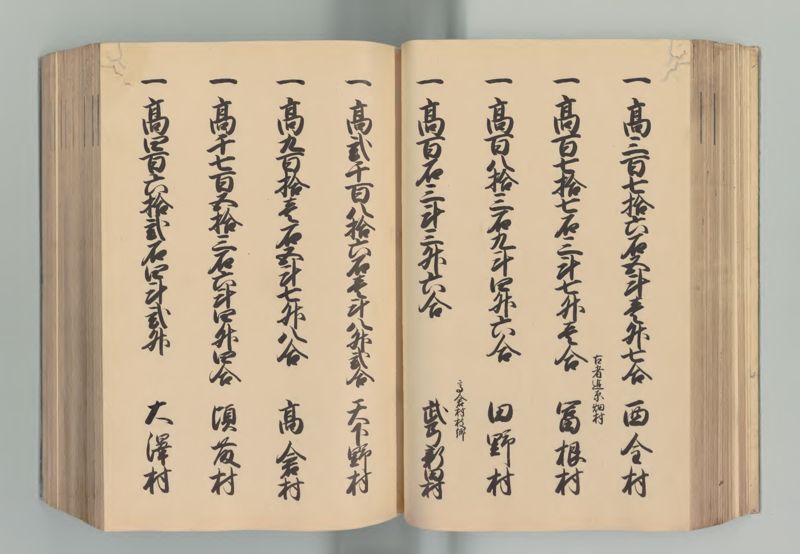 一高三百七拾六石五斗壱升七合 西今村
一高百七拾七石三斗七升壱合 冨根村
古者道京畑村
一高百八拾三石九斗四升六合 田野村
一高百石三斗三升六合 新田村
高倉村枝郷
一高弐千百八拾六石壱斗八升弐合 天下野村
一高九百拾壱石五斗七升八合 高倉村
一高千七百五拾三石六斗四升四合 頃藤村
一高四百六拾弐石四斗弐升 大澤村